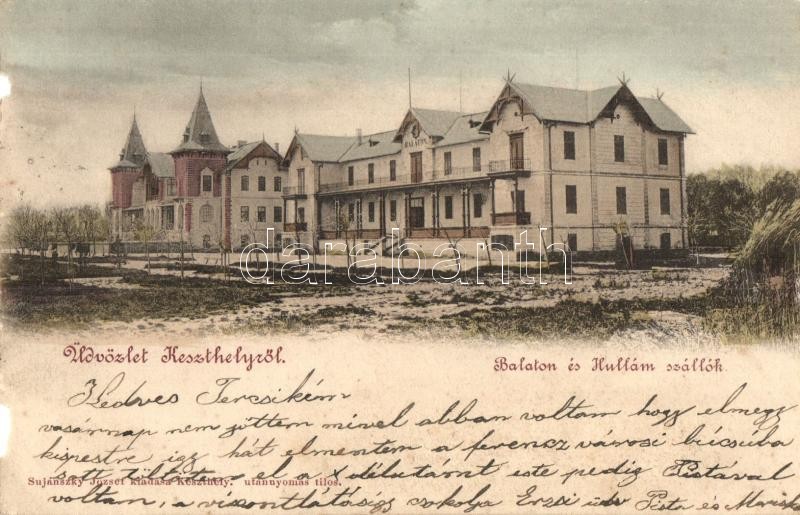 BALATON
darabanth
Üdvözlet Keszthelyről.
Balaton és Hullám szállók
Kedves Tercsikém
vasárnap nem jöttem mivel abban voltam hogy elmegy
kispestre igy hát elmentem a ferencz városi búcsúba
ott el a délutánt este pedig Pistával
Sujánszky József kiadása Keszthely. utánnyomás tilos.
voltam, a viszontlátásig csokolja Erzsi üdv Pista és Mariska